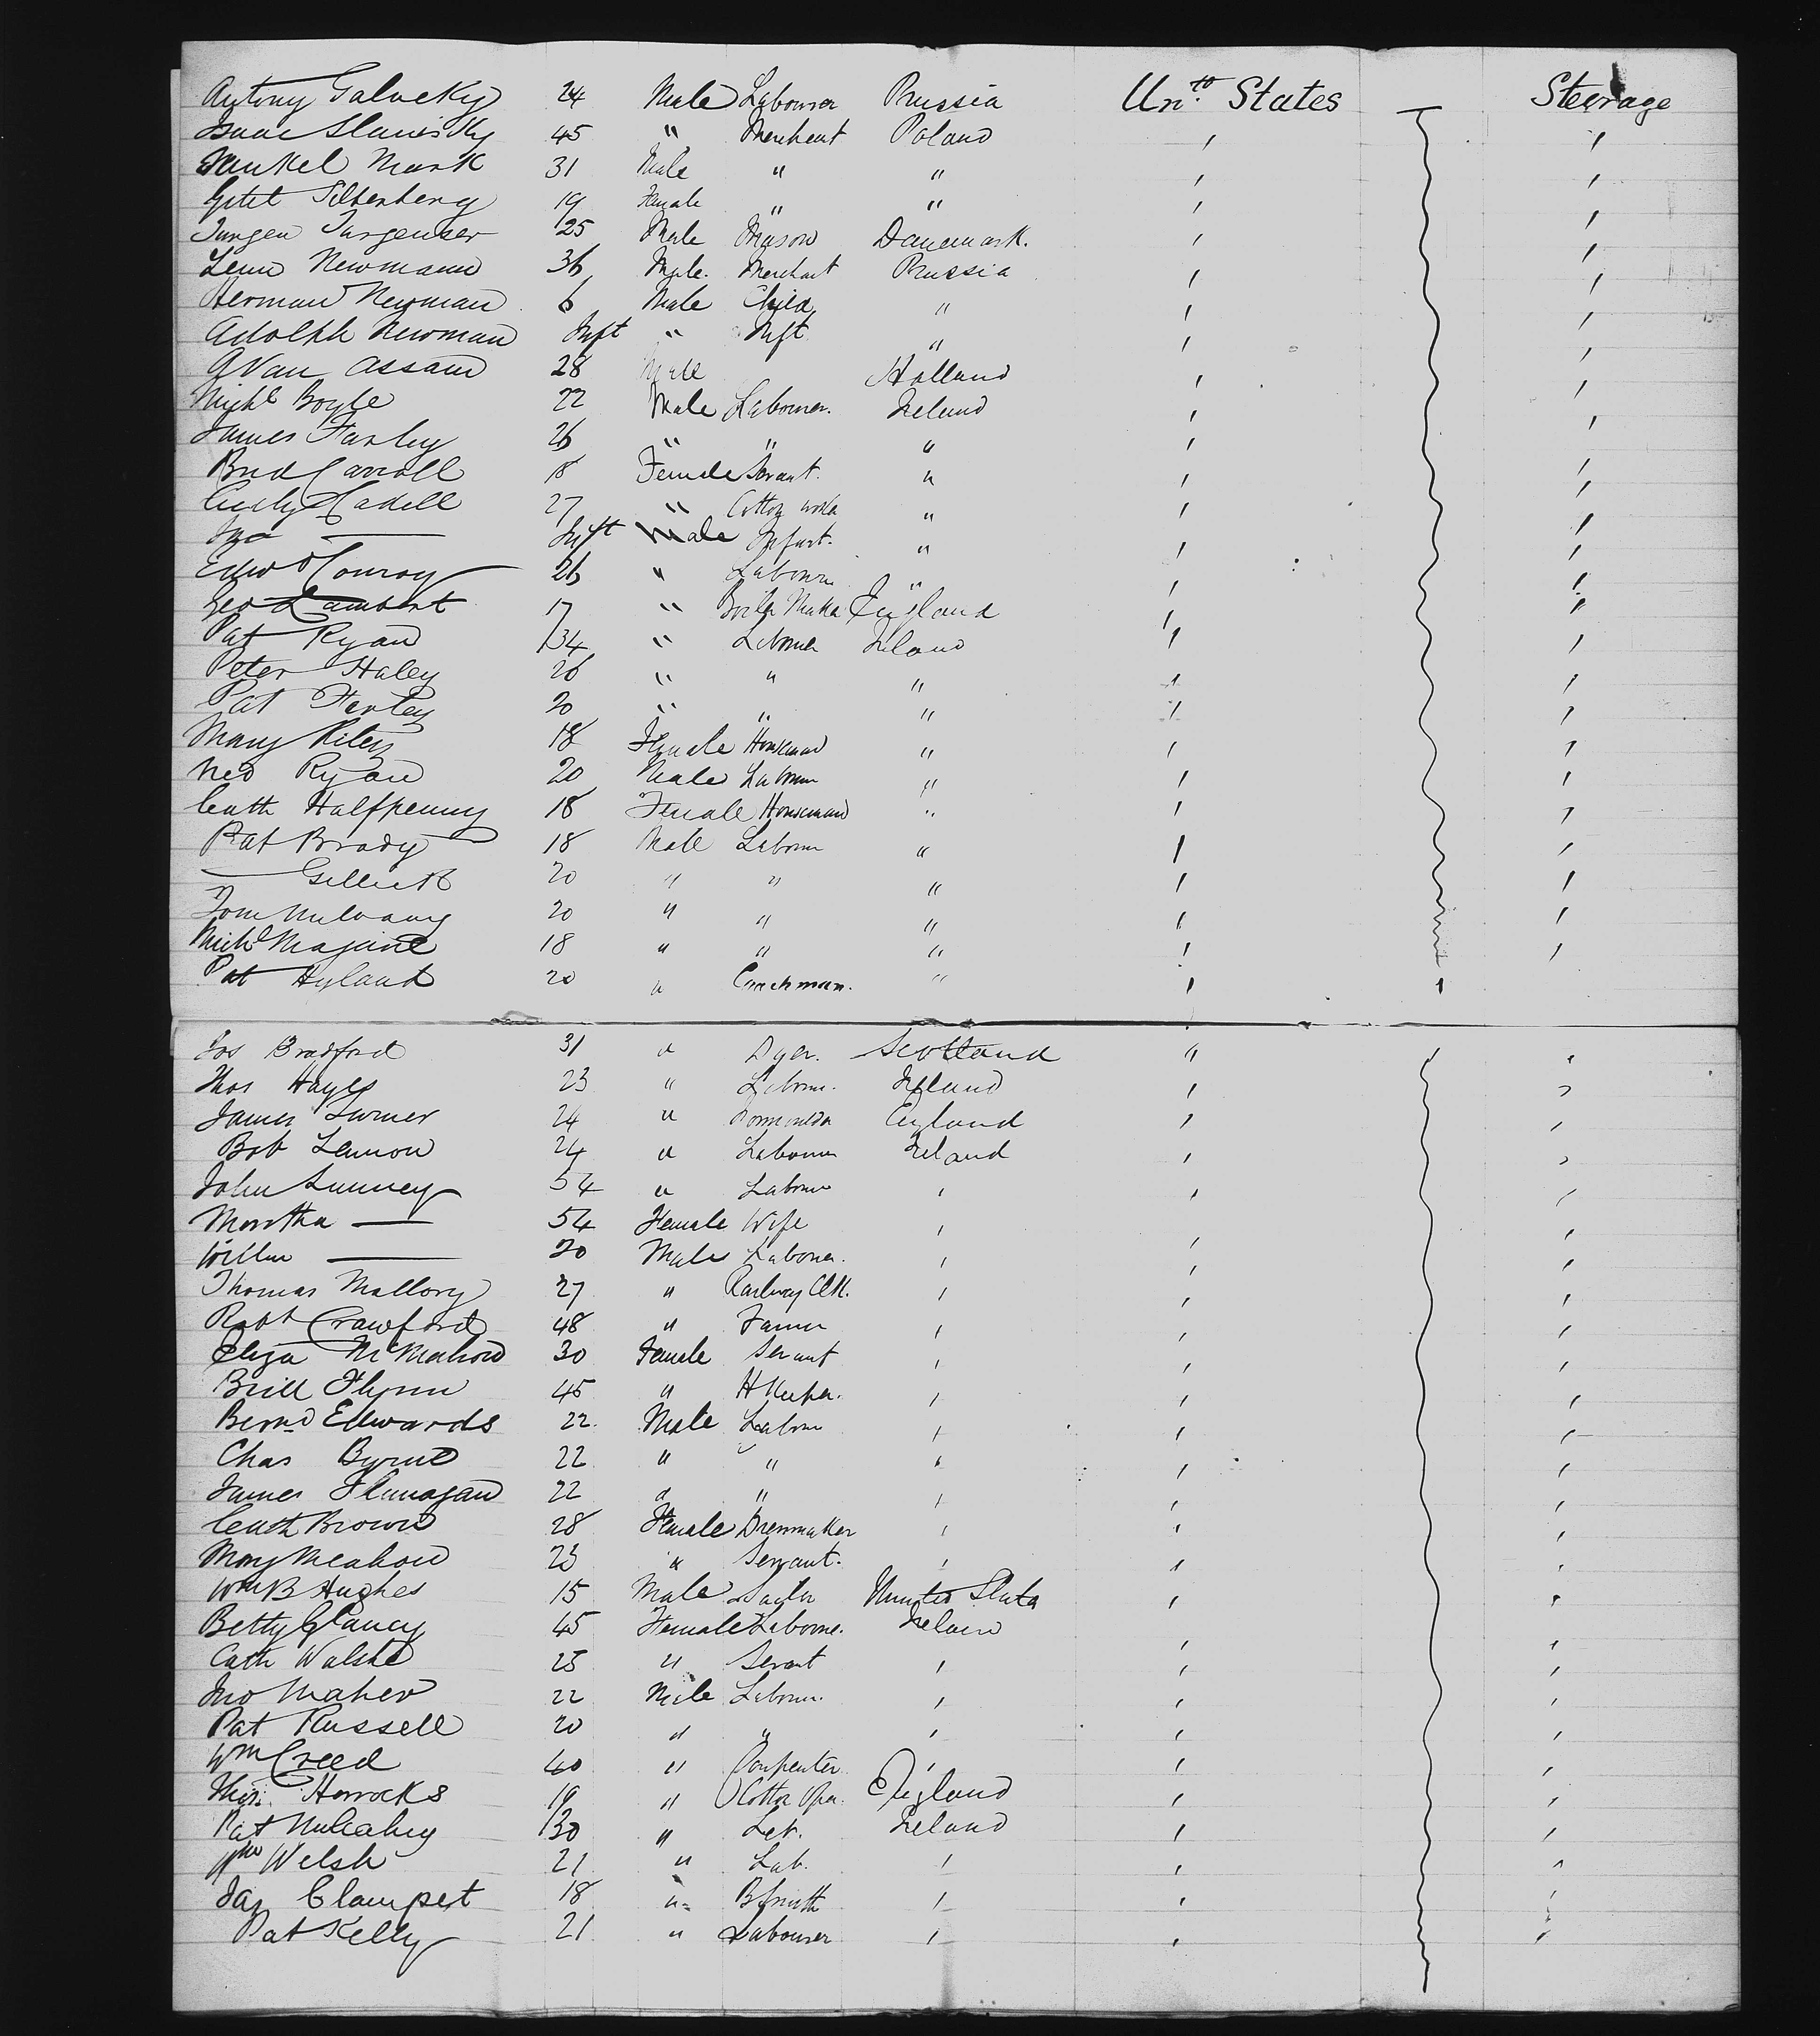 Antony Galvecky 24 Male Labourer Prussia Un.to States Steerage
Isaac Slaviesky 45 " Merchant Poland
Mark 31 Male " "
Gitel Silberberg 19 Female " "
Jurgen Jurgenser 25 Male Mason Danemark.
Newmann 36 Male. Merchant Prussia
Herman Newman 6 Male Child "
Adolph Newman Inft " Inft "
Van Assam 28 Male Holland
Michl Boyle 22 Male Labourer. Ireland
James Farley 26 " " "
Brid Carroll 18 Female Servant. "
Cadell 27 " Cotton "
Jno — Inft Male Infant. "
Edwd Conroy 26 " Labourer "
Geo Lambert 17 " Boiler Maker England
Pat Ryan 34 " Labourer Ireland
Peter Haley 26 " " "
Pat Farley 20 " " "
Mary Riley 18 Female Housemaid "
Ned Ryan 20 Male Labourer "
Cath Halfpenny 18 Female Housemaid "
Pat Brady 18 Male Labourer "
— Gellick 20 " " "
Tom Mulvany 20 " " "
Michl Magine 18 " " "
Pat Hyland 20 " Coachman. "
Jos Bradford 31 " Dyer. Scotland "
Thos Hayes 23 " Labourer. Ireland
James Turner 24 " England
Bob Lennon 24 " Labourer Ireland
John Sunney 54 " Labourer
Martha — 54 Female Wife
Willm — 20 Male Labourer.
Thomas Mallory 27 " Railway Clk.
Robt Crawford 48 " Farmer
Eliza McMahon 30 Female Servant
Brid Flynn 45 " HKeeper.
Bernd Edwards 22. Male Labourer
Chas Byrne 22 " "
James Flanagan 22 " "
Cath Brown 28 Female Dressmaker
Mary Meahow 23 " Servant.
Wm B Hughes 15 Male Saylor United States
Betty Glancy 45 Female Labourer. Ireland
Cath Walshe 25 " Servant
Jno Maher 22 Male Labourer.
Pat Russell 20 " "
Wm Creed 40 " Carpenter
Thos. Horrocks 19 " Cotton Oper. England
Pat Mulcahy 30 " Lab. Ireland
Wm Welsh 21 " Lab.
Jas Clampet 18 " BSmith
Pat Kelly 21 " Labourer